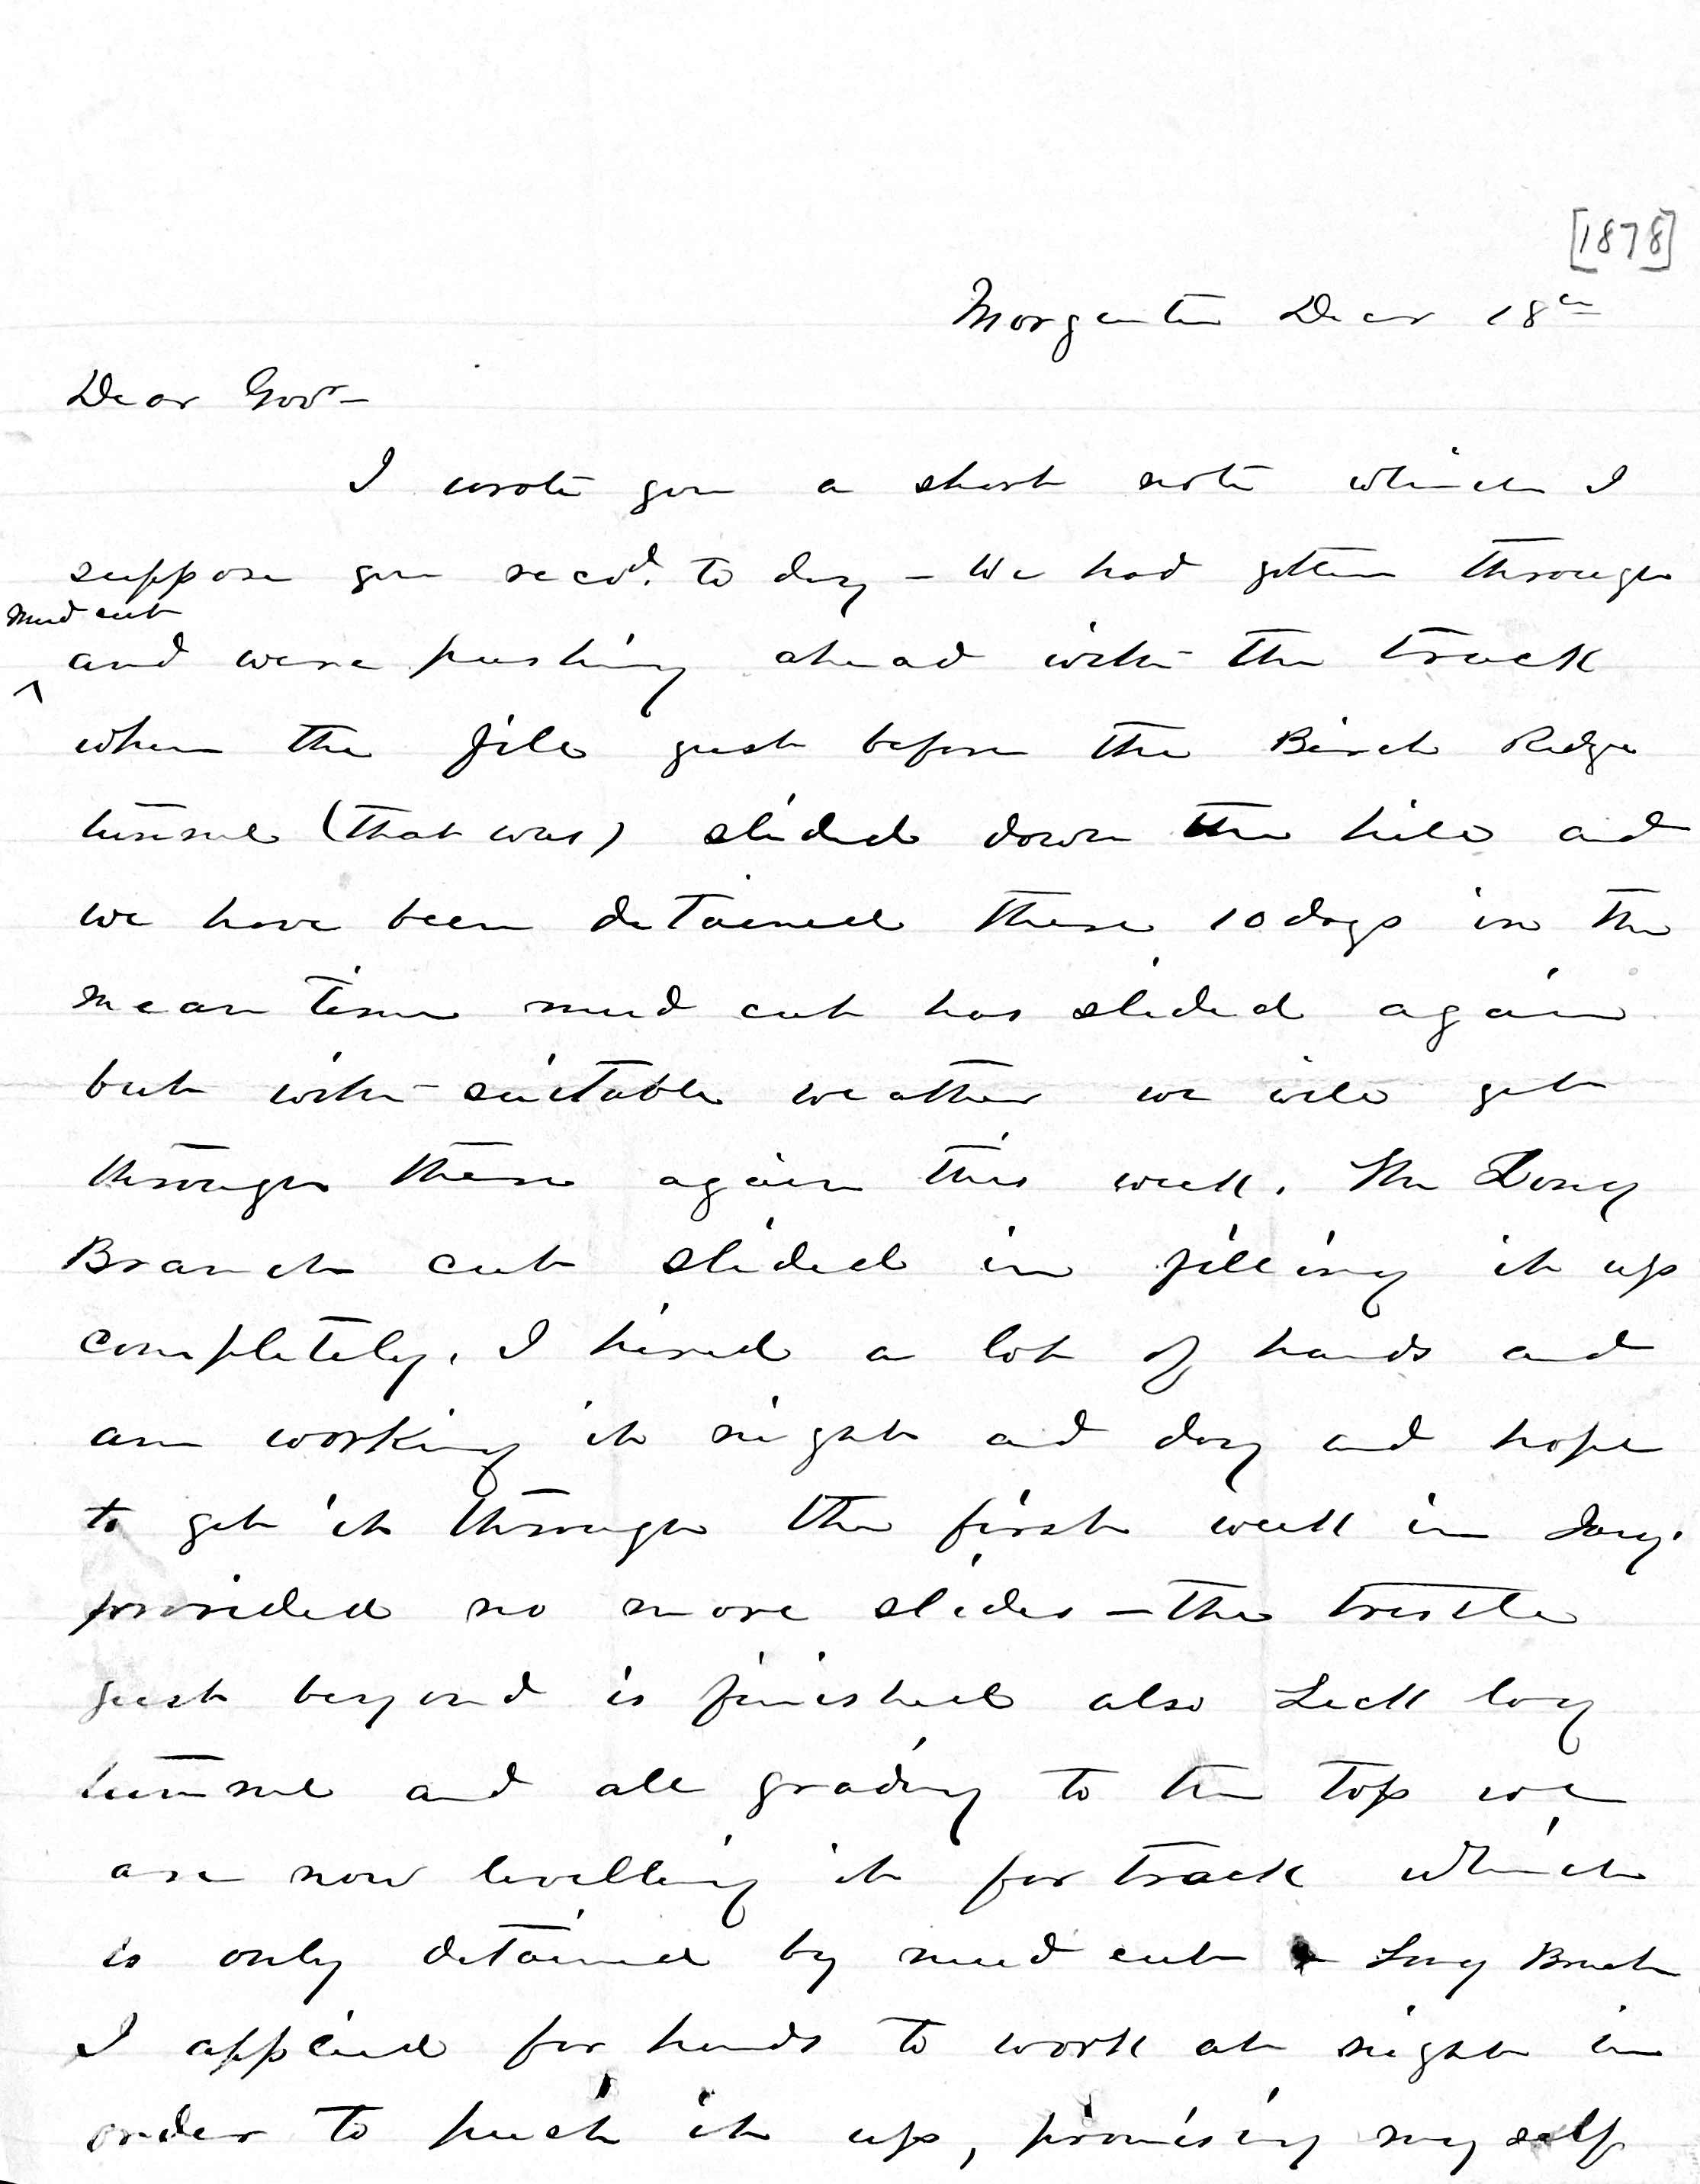 [1878]
Morganton Decr 18th
Dear Govr—
I wrote you a short note which I
suppose you recd. to day — We had gotten through
mud cut
^ and were pushing ahead with the track
when the fill just before the Birch Ridge
tunnel (that was) slided down the hill and
we have been detained there 10 days in the
mean time mud cut has slided again
but with suitable weather we will get
through there again this week. The Long
Branch cut slided in filling it up
completely. I hired a lot of hands and
am working it night and day and hope
to get it through the first week in Jany.
provided no more slides — the trestle
just beyond is finished also Lick log
tunnel and all grading to the top we
are now levelling it for track which
is only detained by mud cut & Long Branch
I applied for hands to work at night in
order to push it up, promising my self